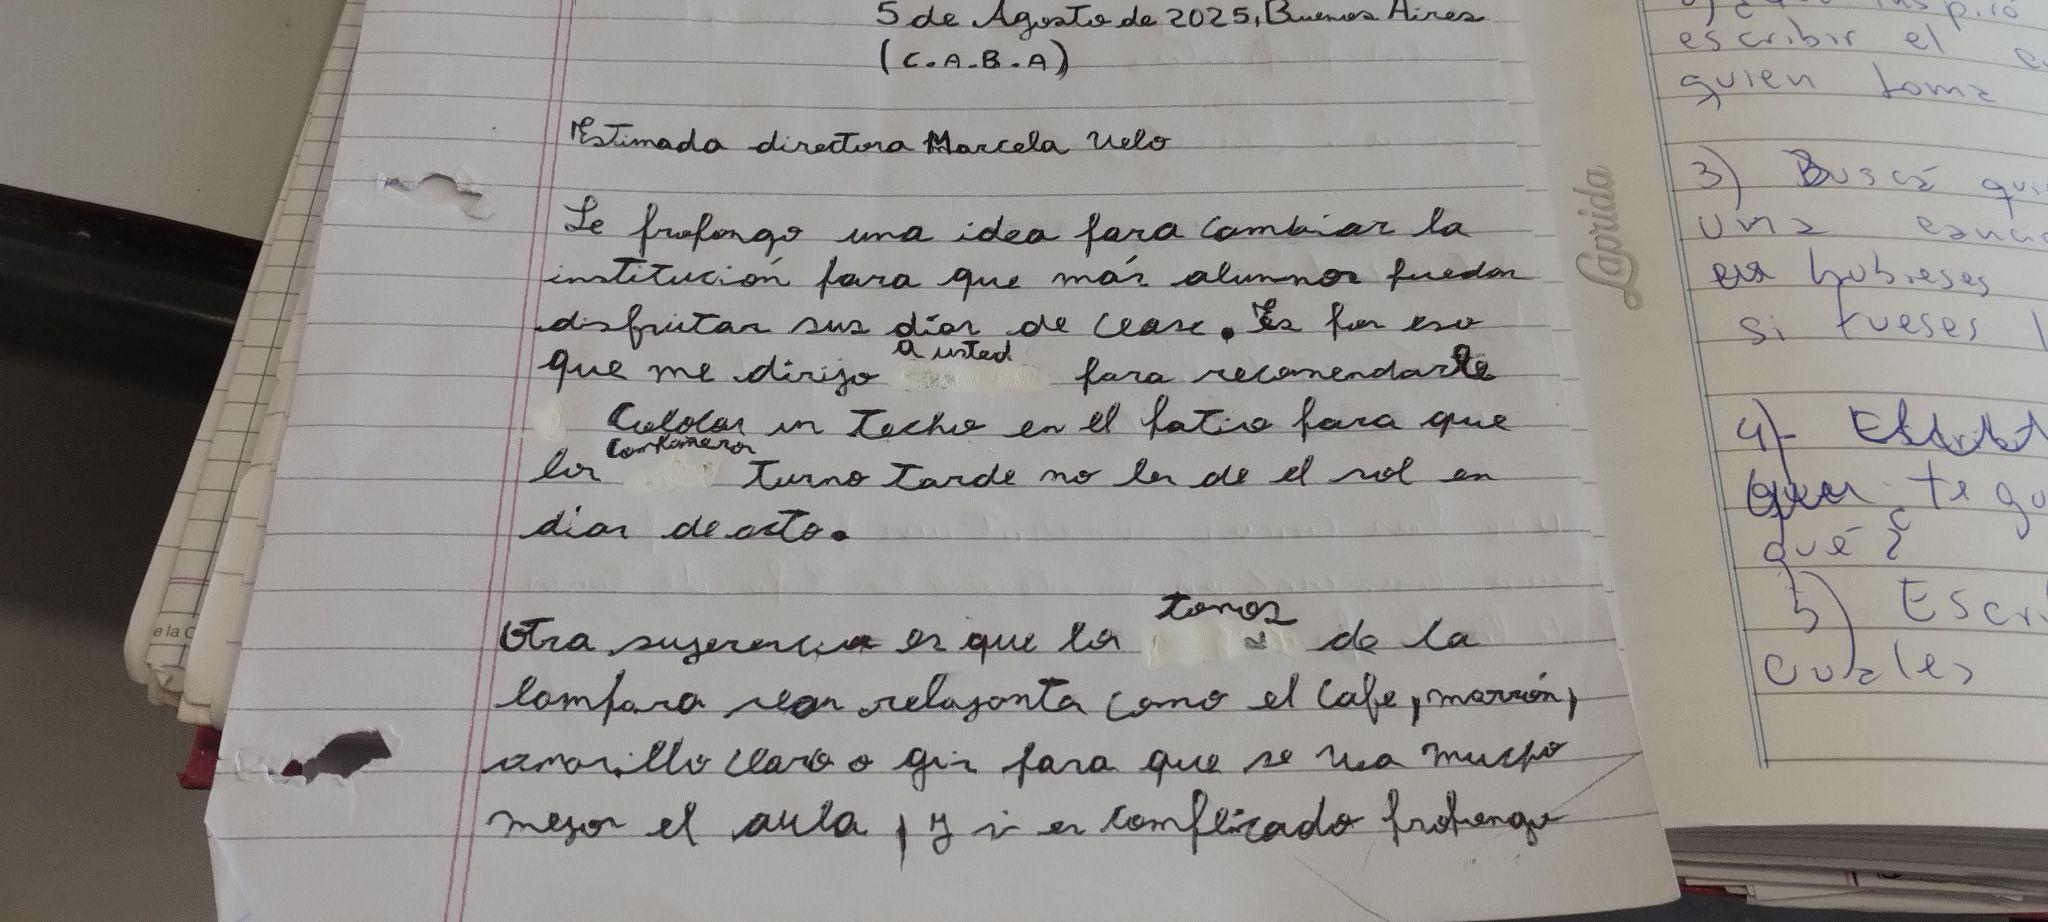 5 de Agosto de 2025, Buenos Aires
(C.A.B.A)
Estimada directora Marcela Velo
Le propongo una idea para cambiar la
institución para que más alumnos puedan
disfrutar sus días de clase. Es por eso
que me dirijo a usted para recomendarle
Colocar un techo en el patio para que
los compañeros turno tarde no les de el sol en
dias de acto.
Otra sugerencia es que los tonos de la
lampara sean relajonta como el cafe, marrón,
amarillo claro o gis para que se vea mucho
mejor el aula, y si es complicado propongo
Laprida
e la C
inspiró
escribir el
quien toma
3) Buscá
una
hubieses
si fueses
4)-
te
qué?
5) Escri
cuales